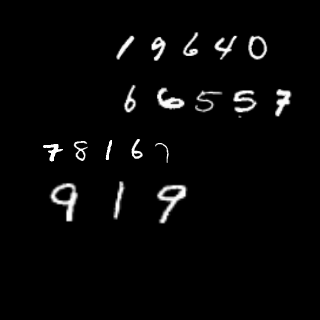 19640
66557
78167
919